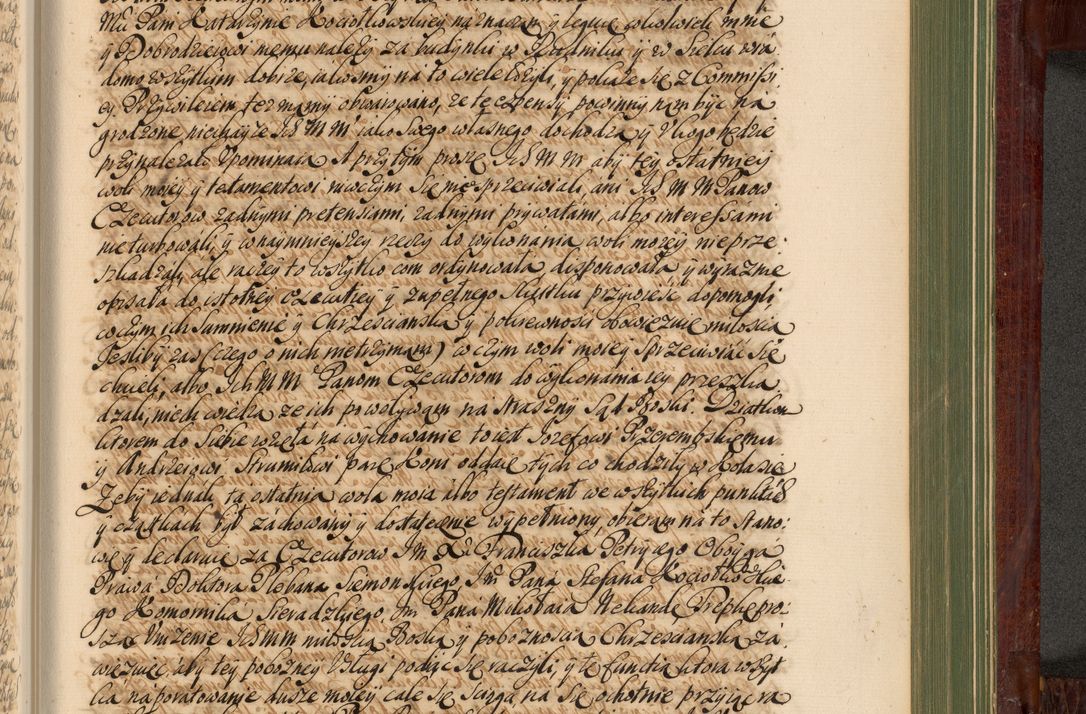 Mci Pani Katarzynie Kociołkowskiey naznaczam y leguię cokolwiek mnie
y Dobrodzieiowi memu należy za budynki w y w Sielcu wia
domo wszytkim dobrze, iakośmy na to wiele łożyli, y pokaże się z Commissi
ey. Przywileiem też mamy obwarowano, że te expensy powinny nam być na
grodzone niechayże Ich MM iako swego własnego dochodzą y u kogo będzie
przynależało upominaią. A przy tym proszę Ich M M aby tey ostatniey
woli moiey y testamentowi niwczym się niesprzeciwiali, ani Ich M M Panow
Exekutorow żadnymi pretensiami, żadnymi prywatami, albo interessami
nieturbowali, y w naymnieyszey rzeczy do wykonania woli moiey nieprze-
szkadzali, ale raczey to wszytko com ordynowała disponowała y wyraźnie
opisała do istotney exekutiey y zupełnego skutku przywieść dopomogli
w czym ich sumnienie y Chrześcianską y pokrewności obowięzuię miłością
Iesliby zas (czego o nich nietrzymam) w czym woli moiey sprzeciwiać się
chcieli, albo Ich M M Panom Exekutorom do wykonania iey przeszka
dzali, niech wiedzą że ich powoływam na straszny Sąd Boski. Dziatkom
ktorem do siebie wzięła na wychowanie to iest Iozefowi Przerembskiemu
y Andrzeiowi Strumiłowi parę Koni oddaię tych co chodziły w Kolasie
Żeby iednak ta ostatnia wola moia albo testament we wszytkich punktach
y cząstkach był zachowany y dostatecznie wypełniony, obieram na to stano-
wię y declaruię za Exekutorow I M Xa Franciszka Petrycego Oboyga
Prawa Doktora Plebana Siemońskiego, I M Pana Stefana Kociołkowskie-
go Komornika Sieradzkiego, I M Pana Mikołaia Prepkę pro-
sząc uniżenie Ich M M miłością Boską y pobożnością Chrześcianską za
więzuiąc, aby tey pobożney usługi podiąć się raczyli, y tę functią ktora wszyt
ka na poratowanie dusze moiey cale się ściąga, na się ochotnie przyięra